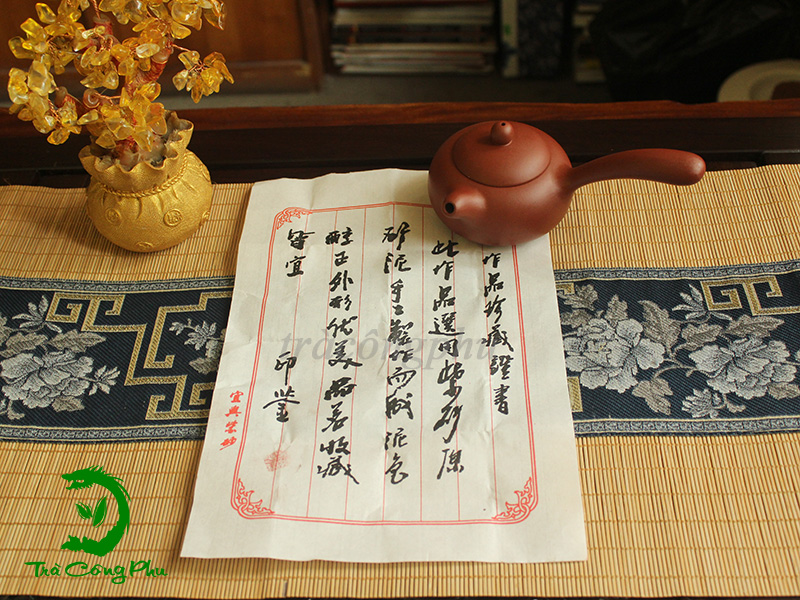 作品珍藏證書
此作品選用紫砂原
矿泥手工製作而成泥色
醇正外形优美品茗收藏
皆宜
印鉴
宜興紫砂
trà công phu
Trà Công Phu